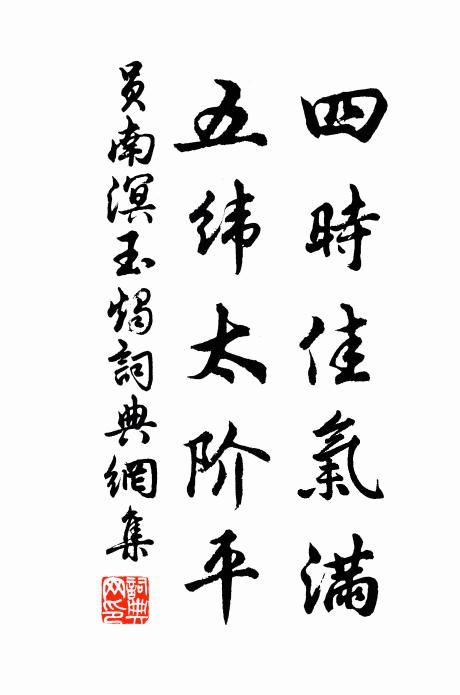 四時佳氣滿
五緯太阶平
員南溟玉燭詞典網集
詞典网印